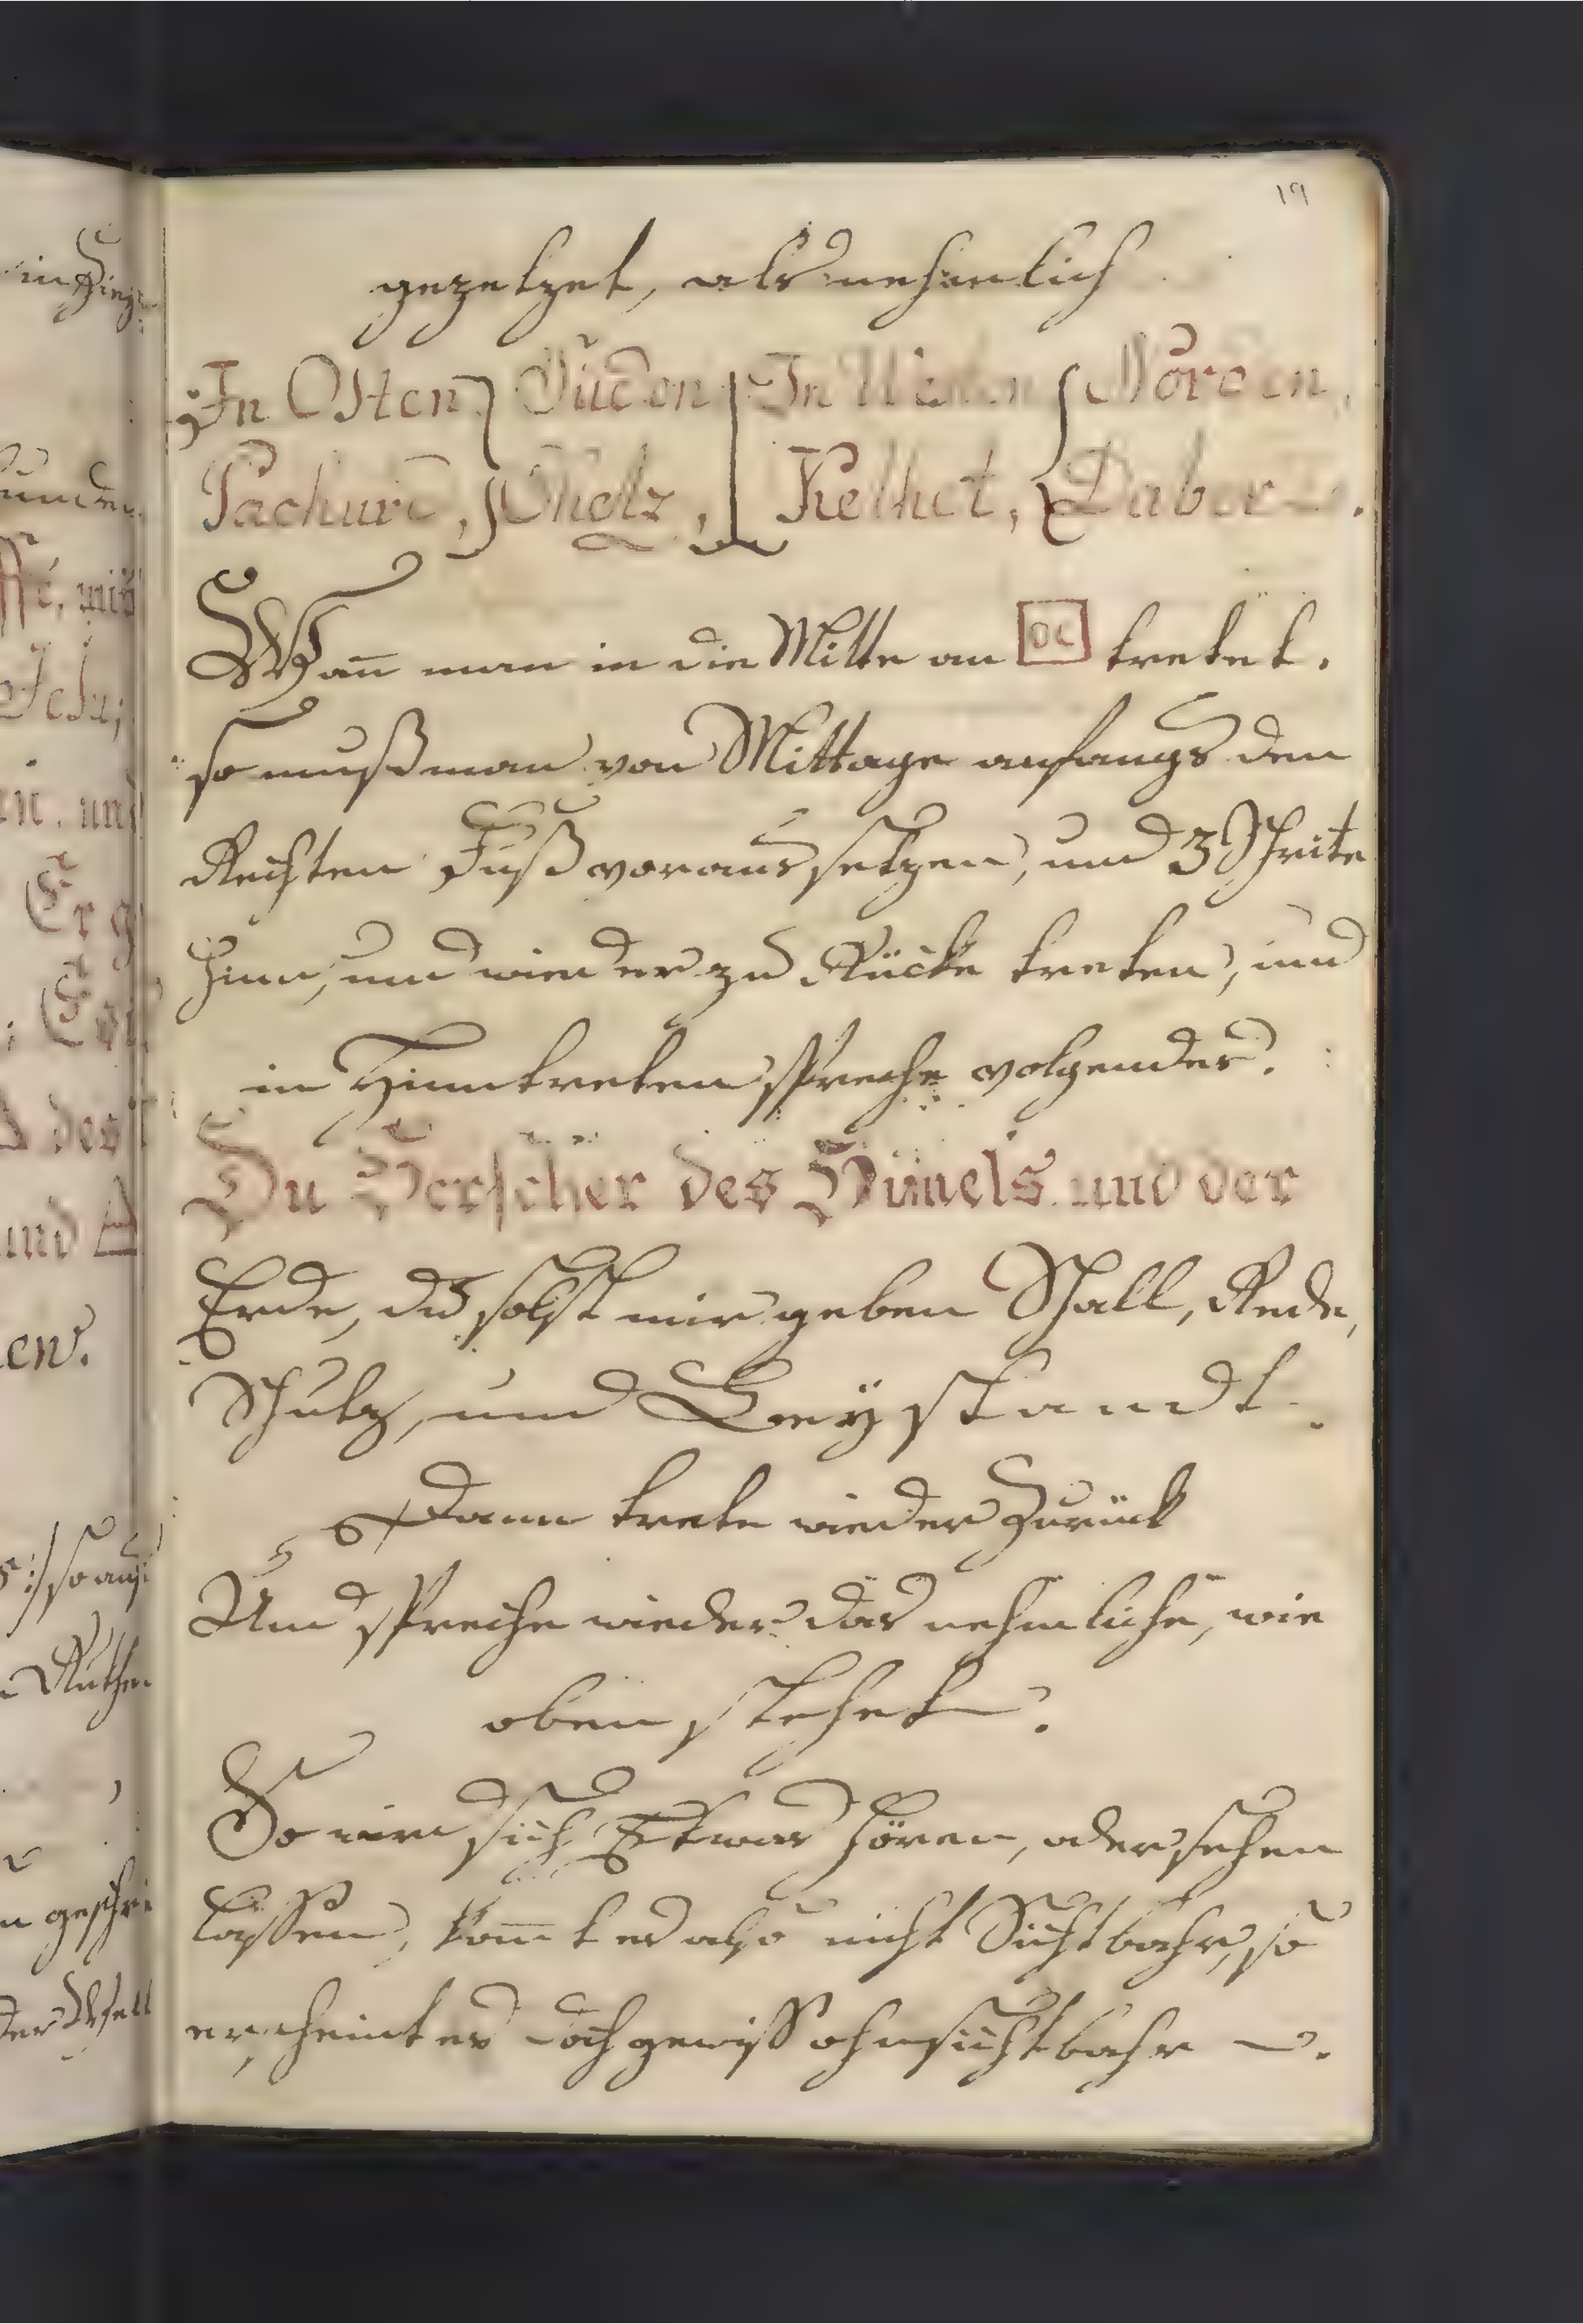 19
gezetzet, als nehmlich
In Osten Süden In Westen Norden,
Pachurd, Chelz, Kelhet, Dabor
Wañ man in die Mitte an DC tretet.
so muß man von Mittage anfangs den
Rechten Fuß voraus setzen, und 3 Schrite
hinn, und wieder zu Rücke treten, und
in Hinntreten spreche volgendes.
Du Herscher des Him̄els und der
Erde, du solst mir geben Schall, Rede,
Schutz, und Beystandt.
Dann trete wieder Zurück
Und spreche wieder das nehmliche, wie
oben stehet.
So wird sich Etwas hören, oder sehen
lassen, kom̄t es also nicht Sichtbahr, so
erscheint es doch gewiss ohnsichtbahr